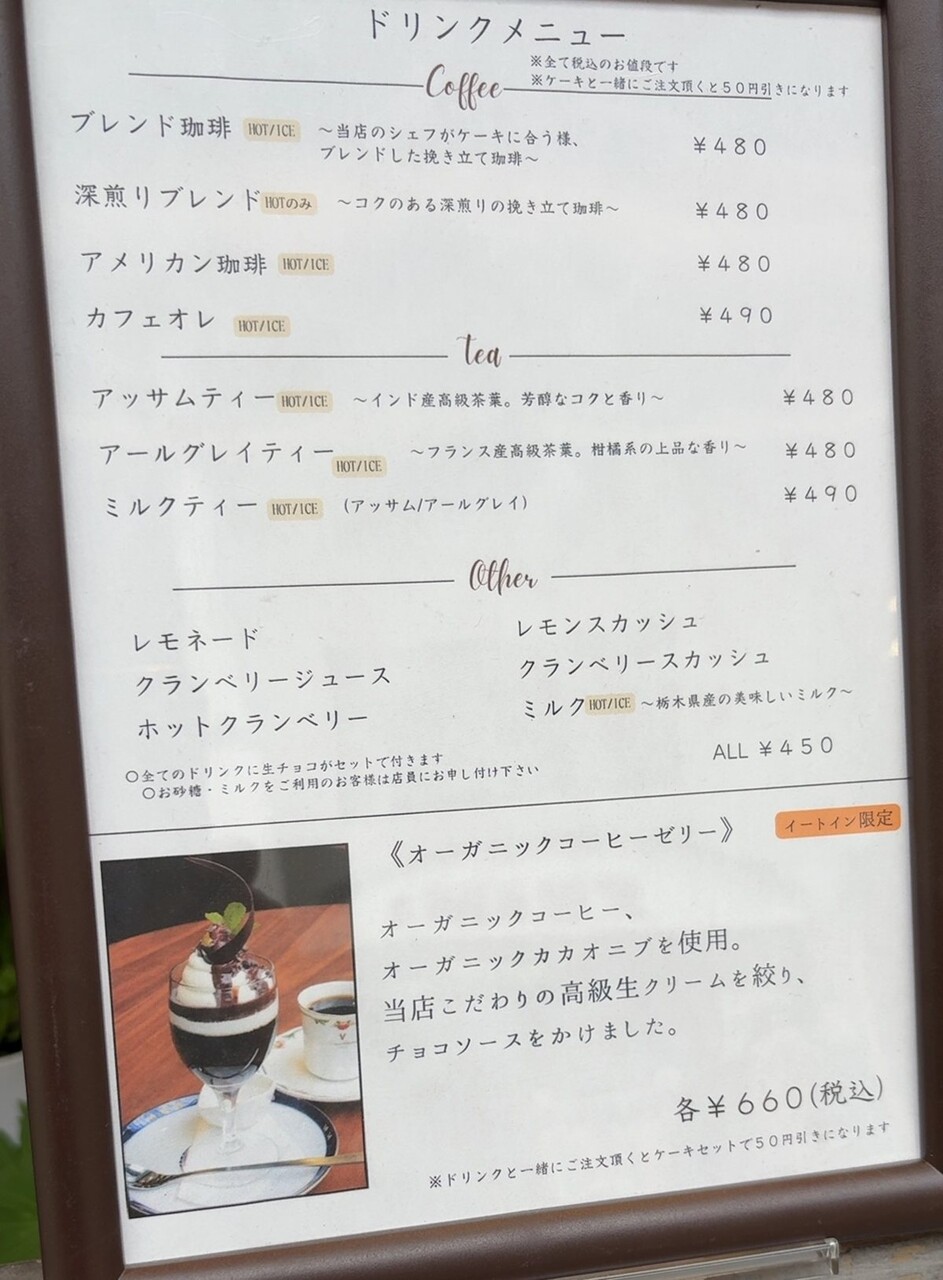 ドリンクメニュー
※全て税込のお値段です
※ケーキと一緒にご注文頂くと５０円引きになります
Coffee
ブレンド珈琲 HOT/ICE ～当店のシェフがケーキに合う様、 ￥４８０
ブレンドした挽き立て珈琲～
深煎りブレンド HOTのみ ～コクのある深煎りの挽き立て珈琲～ ￥４８０
アメリカン珈琲 HOT/ICE ￥４８０
カフェオレ HOT/ICE ￥４９０
tea
アッサムティー HOT/ICE ～インド産高級茶葉。芳醇なコクと香り～ ￥４８０
アールグレイティー HOT/ICE ～フランス産高級茶葉。柑橘系の上品な香り～ ￥４８０
ミルクティー HOT/ICE （アッサム/アールグレイ） ￥４９０
Other
レモネード レモンスカッシュ
クランベリージュース クランベリースカッシュ
ホットクランベリー ミルク HOT/ICE ～栃木県産の美味しいミルク～
ALL ￥４５０
○全てのドリンクに生チョコがセットで付きます
○お砂糖・ミルクをご利用のお客様は店員にお申し付け下さい
イートイン限定
《オーガニックコーヒーゼリー》
オーガニックコーヒー、
オーガニックカカオニブを使用。
当店こだわりの高級生クリームを絞り、
チョコソースをかけました。
各￥６６０(税込)
※ドリンクと一緒にご注文頂くとケーキセットで５０円引きになります